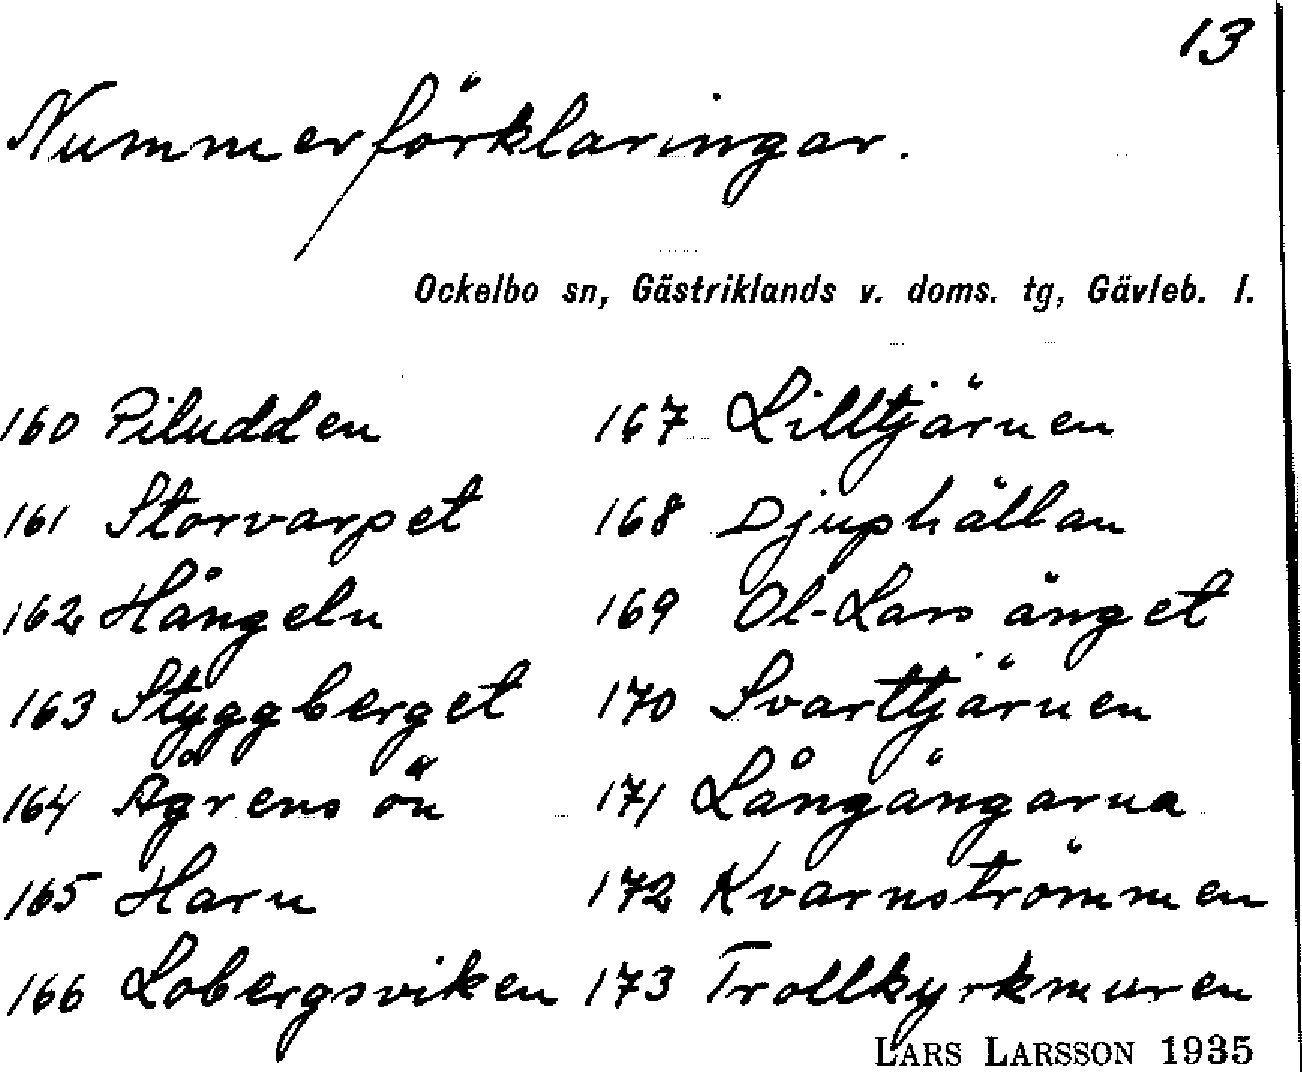 13
Nummerförklaringar.
Ockelbo sn, Gästriklands v. doms. tg, Gävleb. l.
160 Piludden
161 Storvarpet
162 Hängeln
163 Styggberget
164 Ågrens ön
165 Harn
166 Lobergsviken
167 Lilltjärnen
168 Djuphällan
169 Ol-Lars änget
170 Svarttjärnen
171 Långängarna
172 Kvarnströmmen
173 Trollkyrkmuren
LARS LARSSON 1935